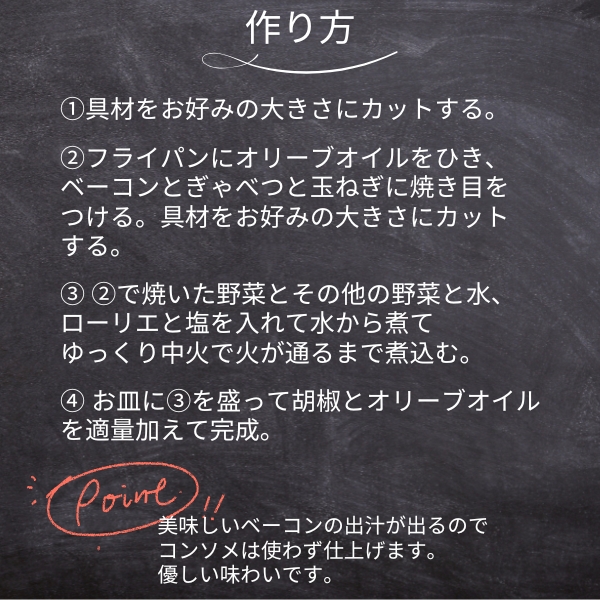 作り方
①具材をお好みの大きさにカットする。
②フライパンにオリーブオイルをひき、
ベーコンとぎゃべつと玉ねぎに焼き目を
つける。具材をお好みの大きさにカット
する。
③ ②で焼いた野菜とその他の野菜と水、
ローリエと塩を入れて水から煮て
ゆっくり中火で火が通るまで煮込む。
④ お皿に③を盛って胡椒とオリーブオイル
を適量加えて完成。
Point!!
美味しいベーコンの出汁が出るので
コンソメは使わず仕上げます。
優しい味わいです。